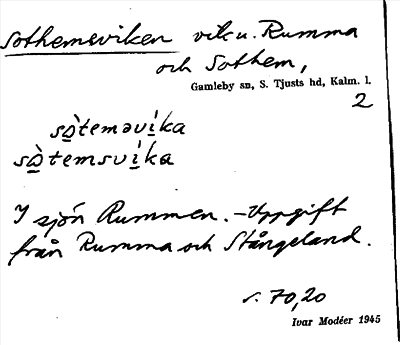 Sothemsviken vik u. Rumma
och Sothem,
Gamleby sn, S. Tjusts hd, Kalm. l.
2
sò̱teməvi̱̇ka
sò̱temsvi̱̇ka
I sjön Rummen. – Uppgift
från Rumma och Stångeland.
s. 70,20
Ivar Modéer 1945